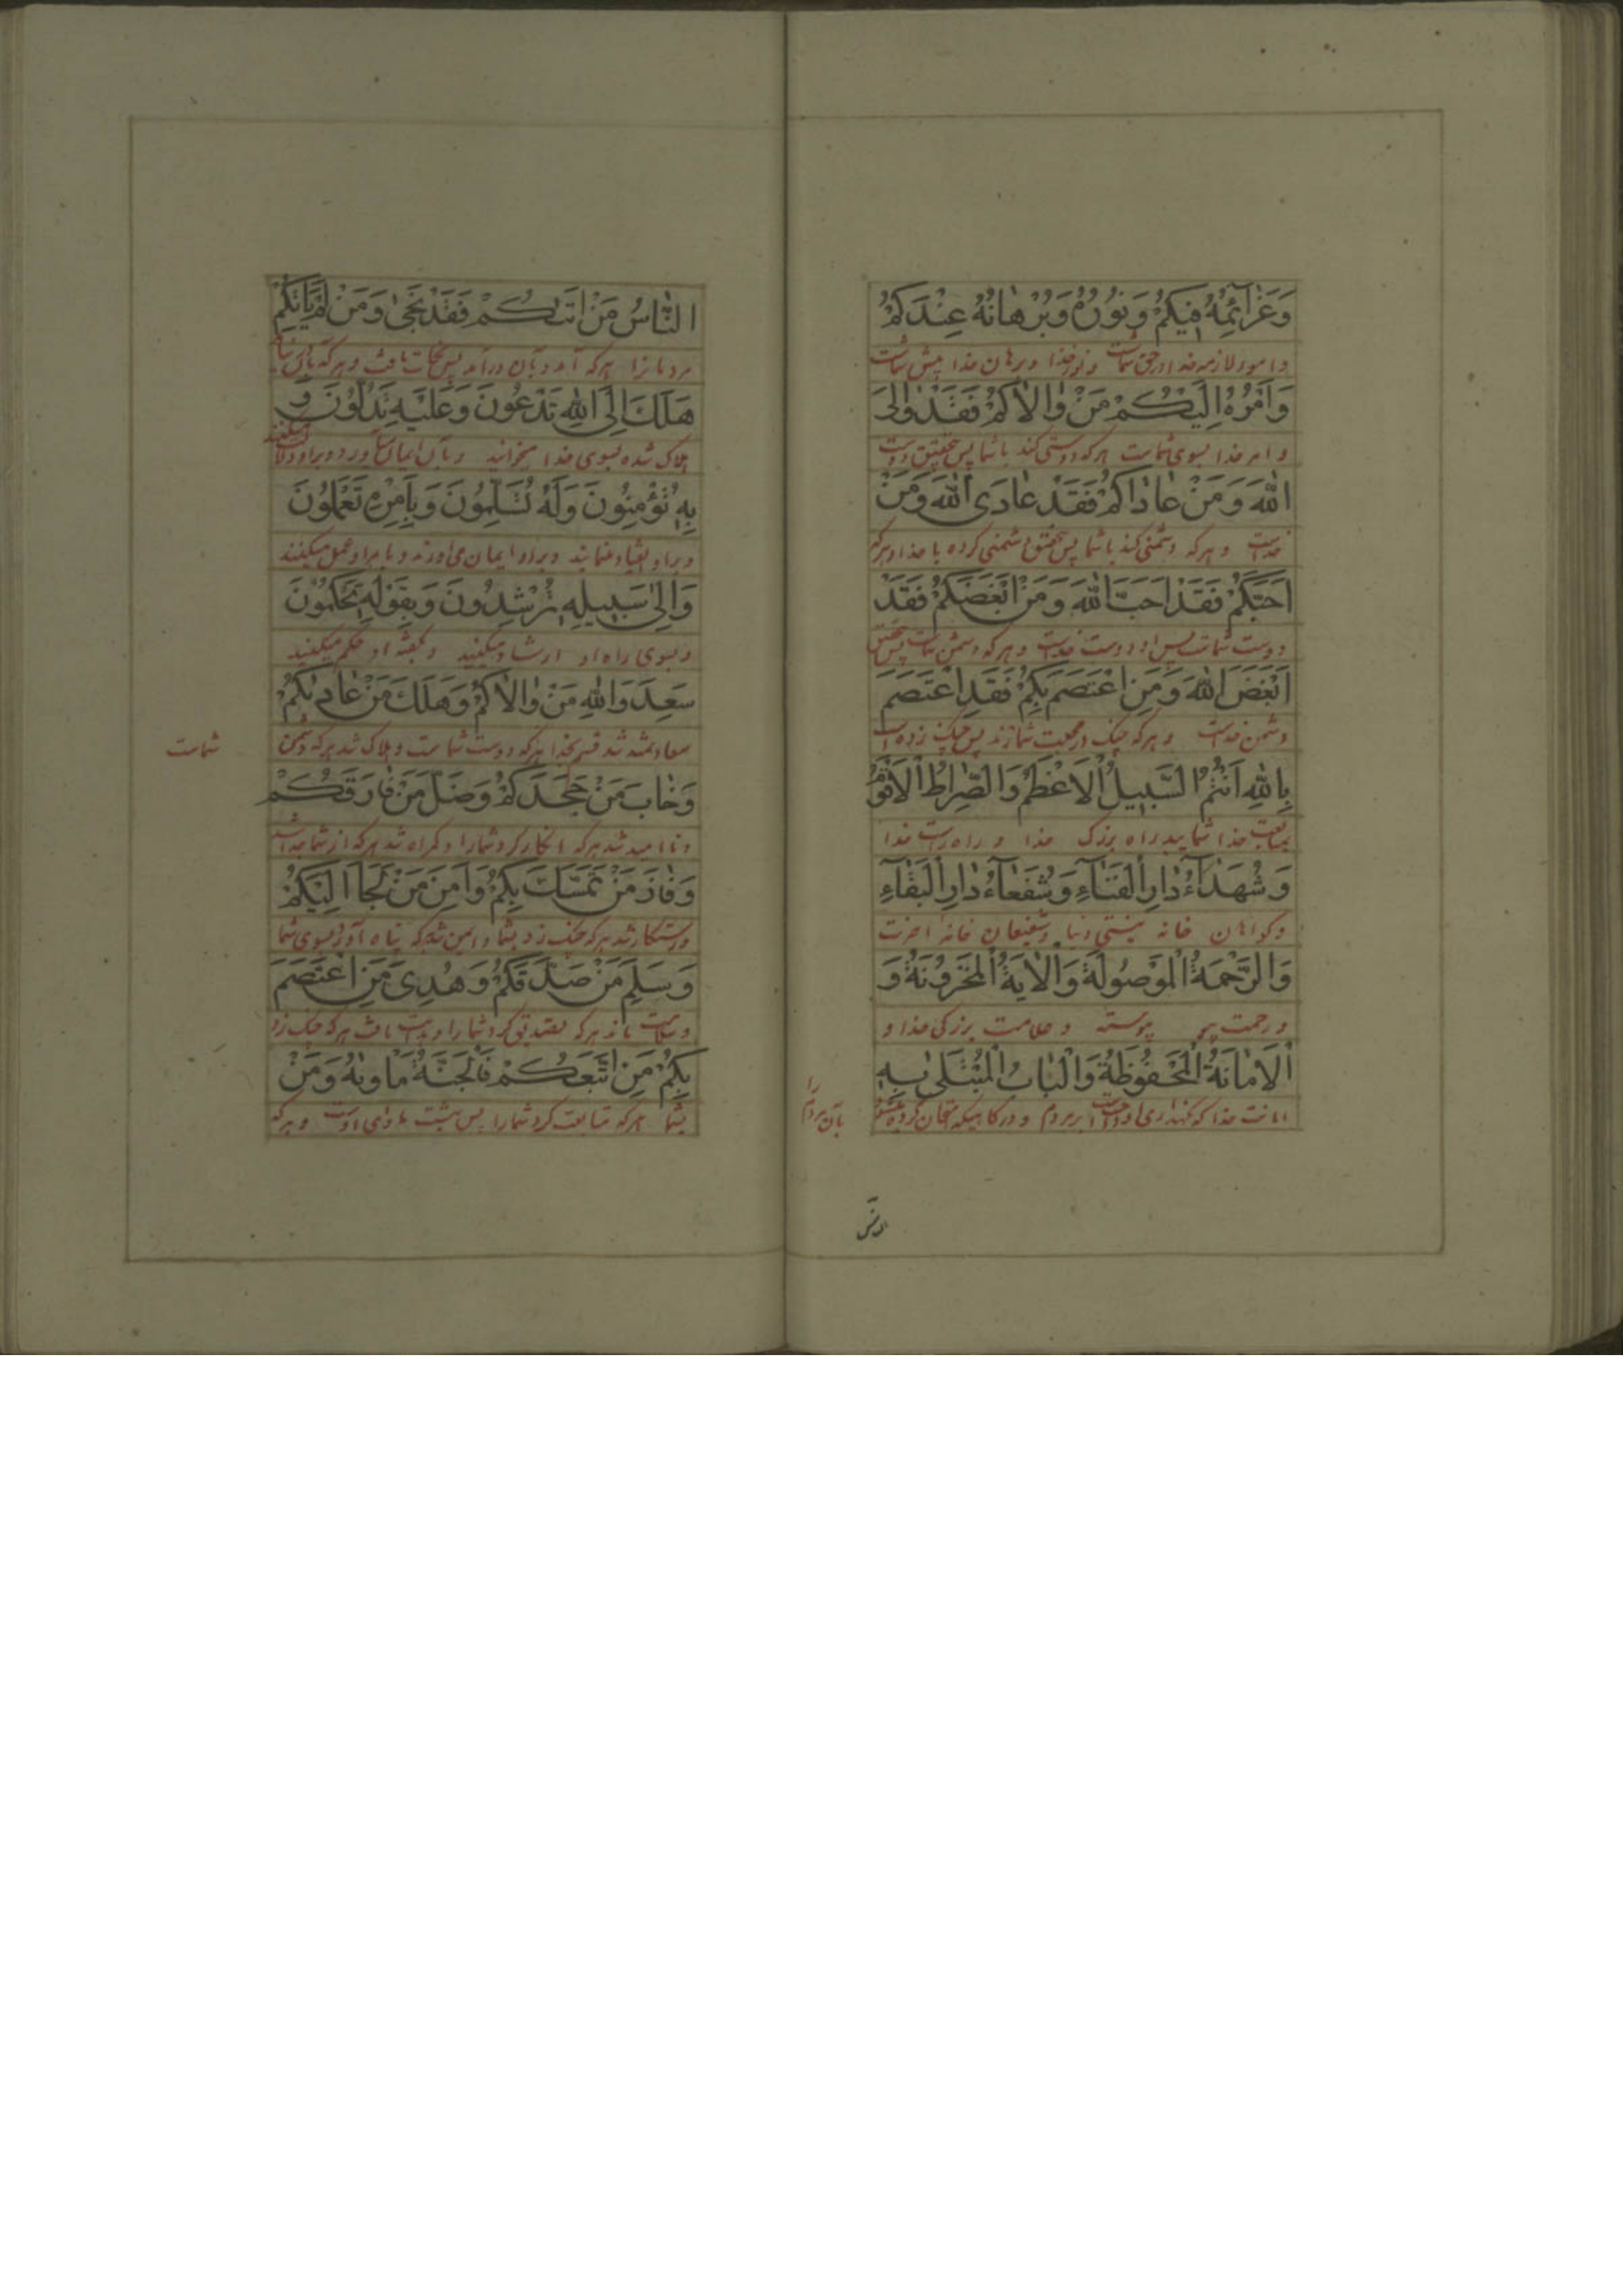 وَعَزٰآئِمُهُ فِيكُمْ وَنُورُهُ وَبُرْهٰانُهُ عِنْدَكُمْ
و امور لازمه خدا در حق شماست و نور خدا و برهان خدا پیش شماست
وَاَمْرُهُ اِلَيْكُمْ مَنْ وٰالاٰكُمْ فَقَدْ وٰالَى
و امر خدا بسوی شماست هر که دوستی کند با شما پس بتحقیق دوست
اللّٰهَ وَمَنْ عٰادٰاكُمْ فَقَدْ عٰادَى اللّٰهَ وَمَنْ
خداست و هر که دشمنی کند با شما پس بتحقیق دشمنی کرده با خدا و هرکه
اَحَبَّكُمْ فَقَدْ اَحَبَّ اللّٰهَ وَمَنْ اَبْغَضَكُمْ فَقَدْ
دوست شماست پس او دوست خداست و هر که دشمن شماست پس بتحقیق
اَبْغَضَ اللّٰهَ وَمَنِ اعْتَصَمَ بِكُمْ فَقَدِ اعْتَصَمَ
دشمن خداست و هر که چنک در محبت شما زند پس چنک زده است
بِاللّٰهِ اَنْتُمُ السَّبِيلُ الْاَعْظَمُ وَالصِّرٰاطُ الْاَقْوَمُ
خدا شمایید راه بزرک خدا و راه راست خدا
وَشُهَدٰآءُ دٰارِ الْفَنٰآءِ وَشُفَعٰآءُ دٰارِ الْبَقٰآءِ
و کواهان خانه نیستی دنیا و شفیعان خانه اخرت
وَالرَّحْمَةُ الْمَوْصُولَةُ وَالْاٰيَةُ الْمَخْزُونَةُ وَ
و رحمت پیوسته و علامت بزرکی خدا و
الْاَمٰانَةُ الْمَحْفُوظَةُ وَالْبٰابُ الْمُبْتَلٰى بِهِ
امانت خدا که نکهداری او بر مردم و درکاهیکه امتحان کرده
بآن مردم را
الناس
النّٰاسُ مَنْ اَتٰيكُمْ فَقَدْ نَجٰى وَمَنْ لَمْ يَاْتِكُمْ
مردمانرا هر که آمد و بآن درآمد پس نجات یافت و هر که بآن نیامد
هَلَكَ اِلَى اللّٰهِ تَدْعُونَ وَعَلَيْهِ تَدُلُّونَ وَ
هلاک شده بسوی خدا میخوانید و دلالت میکنید
بِهِ تُؤْمِنُونَ وَلَهُ تُسَلِّمُونَ وَبِاَمْرِهِ تَعْمَلُونَ
و برای او ایمان می اورند و بامر او عمل میکنند
وَاِلٰى سَبِيلِهِ تُرْشِدُونَ وَبِقَوْلِهِ تَحْكُمُونَ
و بسوی راه او ارشاد میکنید و بکفته او حکم میکنید
سَعِدَ وَاللّٰهِ مَنْ وٰالاٰكُمْ وَهَلَكَ مَنْ عٰادٰيكُمْ
سعادتمند شد قسم بخدا هر که دوست شماست و هلاک شد هر که دشمن
شماست
وَخٰابَ مَنْ جَحَدَكُمْ وَضَلَّ مَنْ فٰارَقَكُمْ
و نا امید شد هر که انکار کرد شما را و کمراه شد هر که از شما جدا شد
وَفٰازَ مَنْ تَمَسَّكَ بِكُمْ وَاَمِنَ مَنْ لَجَاَ اِلَيْكُمْ
و رستکار شد هر که چنک زد بشما و ایمن شد هر که پناه آورد بسوی شما
وَسَلِمَ مَنْ صَدَّقَكُمْ وَهُدِىَ مَنِ اعْتَصَمَ
و سلامت ماند هر که تصدیق کرد شما را و هدایت یافت هر که چنک زد
بِكُمْ مَنِ اتَّبَعَكُمْ فَالْجَنَّةُ مَاْوٰيهُ وَمَنْ
بشما هر که متابعت کرد شما را پس بهشت ماوای اوست و هر که